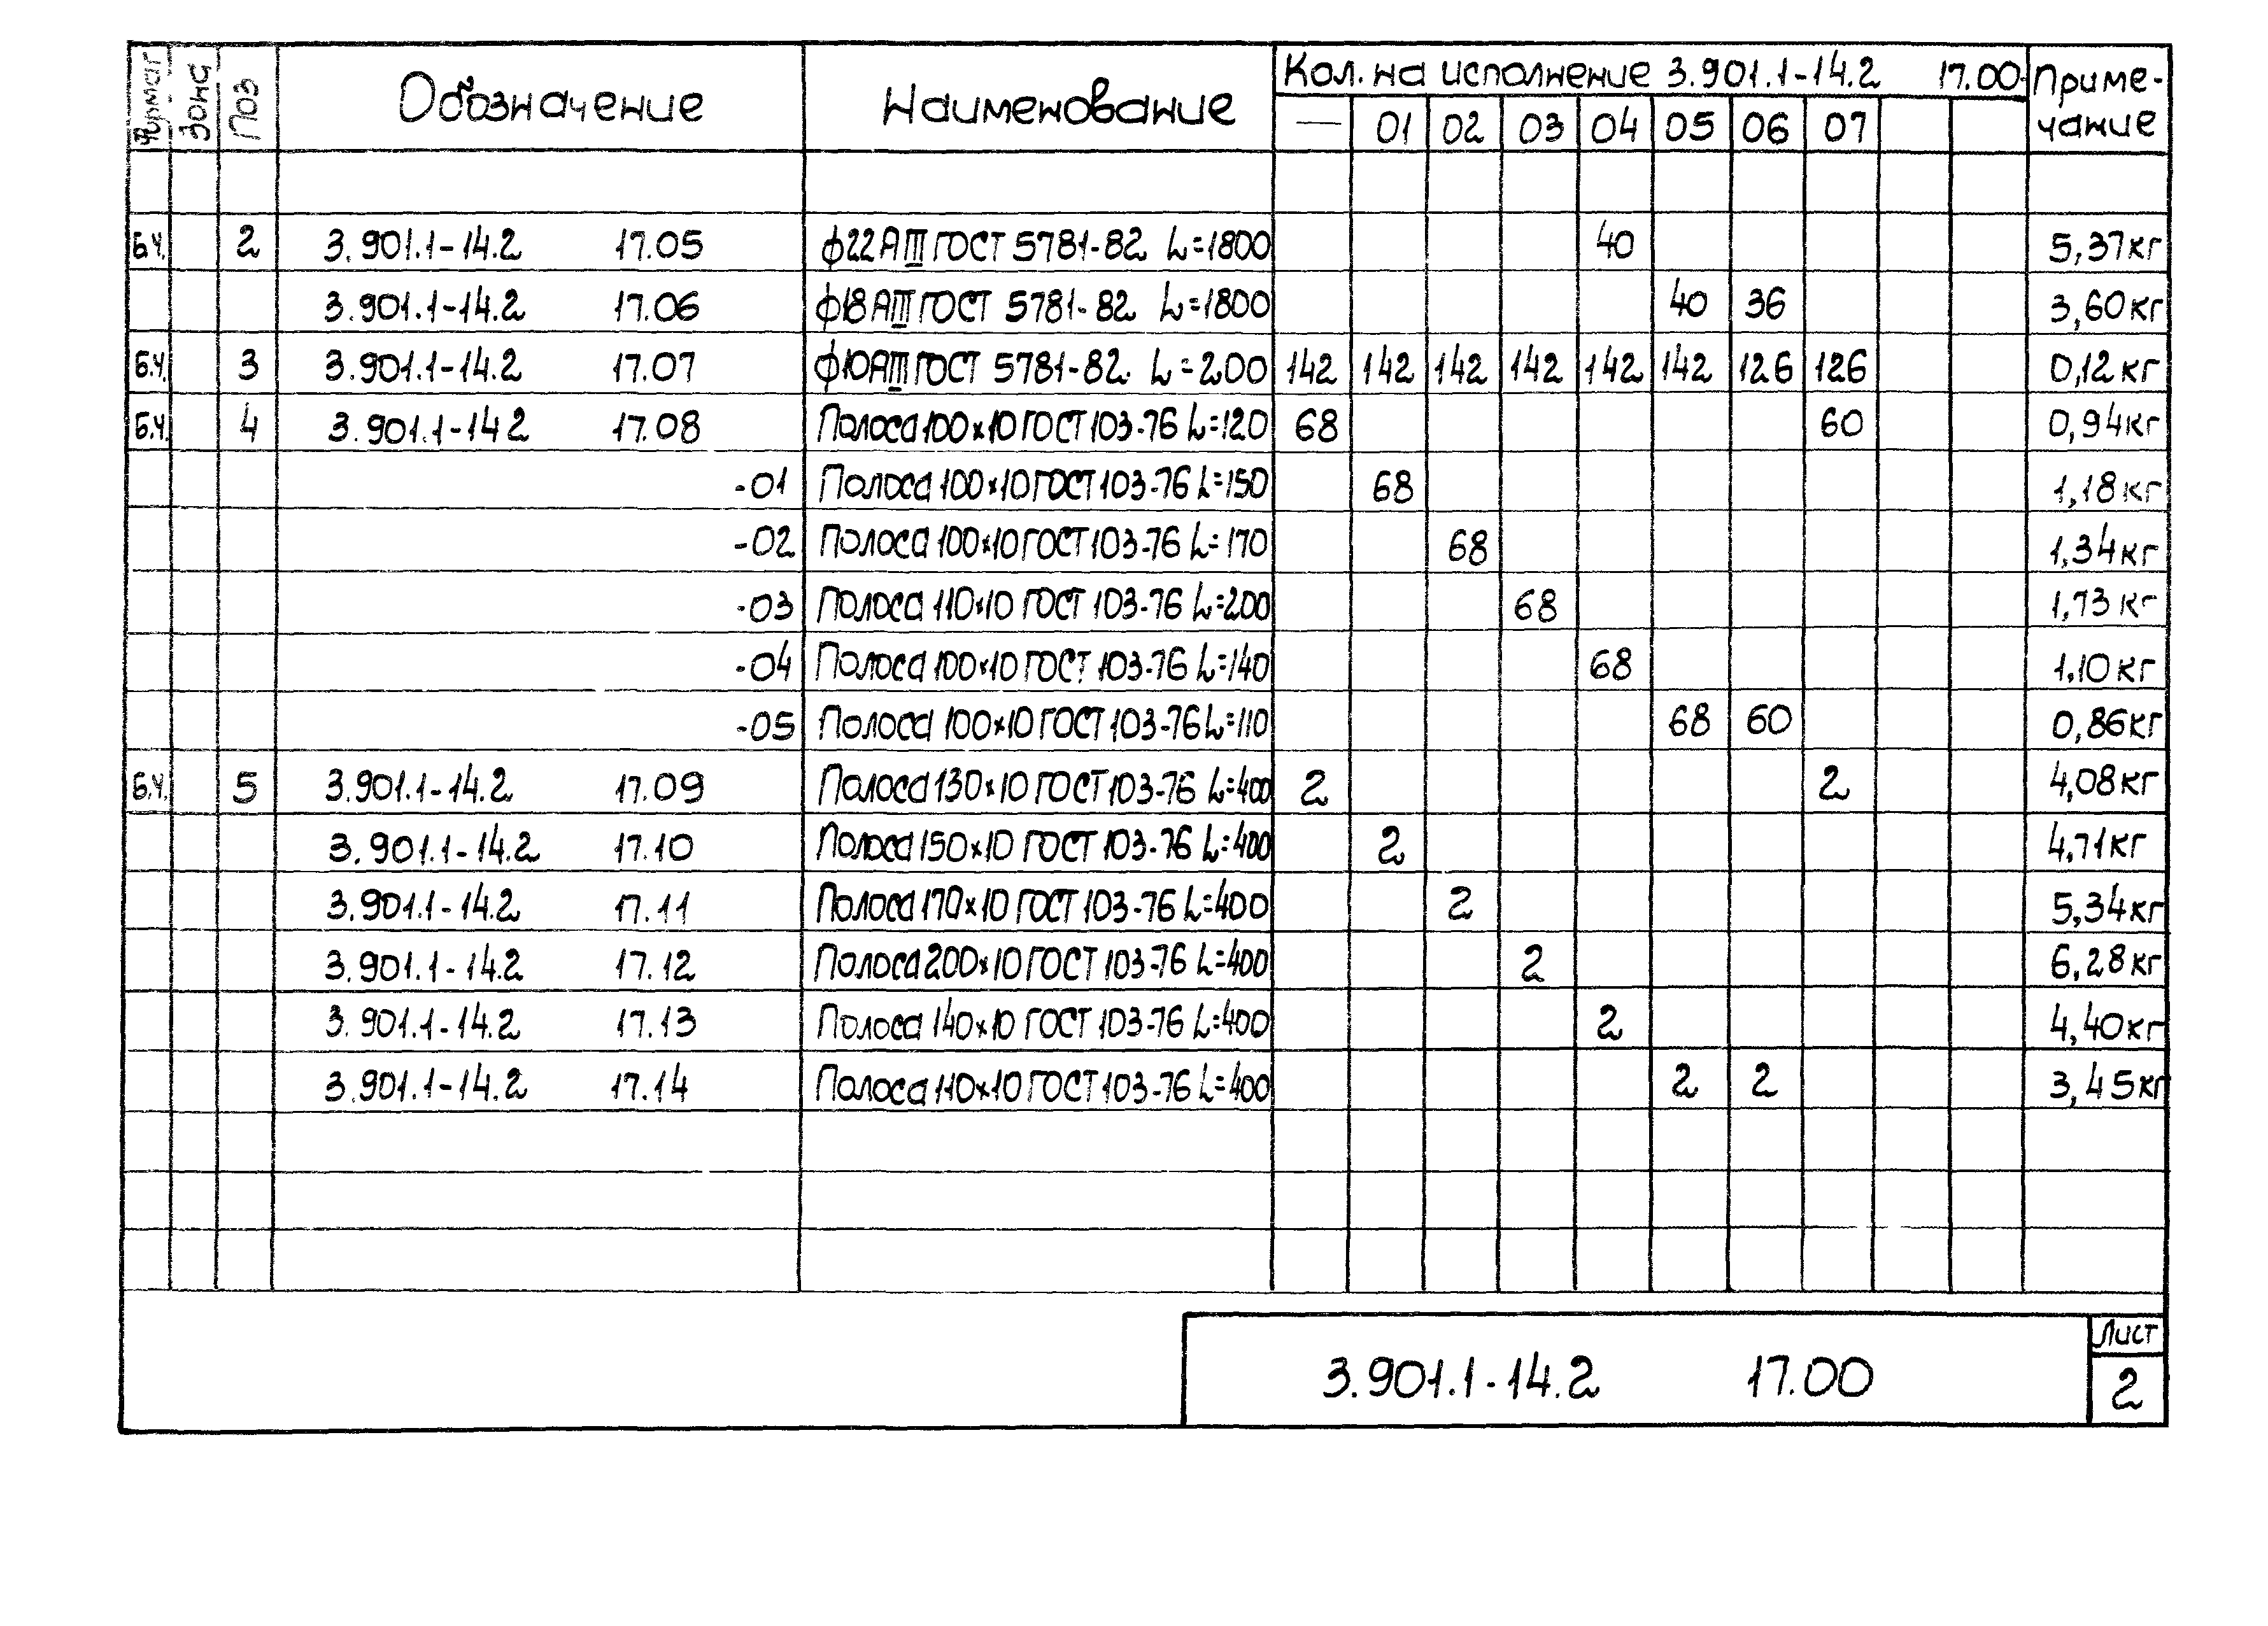 Формат Зона Поз Обозначение Наименование Кол. на исполнение 3.901.1-14.2 17.00- Приме-
чание
— 01 02 03 04 05 06 07
Б.Ч. 2 3.901.1-14.2 17.05 ф22АIII ГОСТ 5781-82 L=1800 40 5,37кг
3.901.1-14.2 17.06 ф18АIII ГОСТ 5781-82 L=1800 40 36 3,60кг
Б.Ч. 3 3.901.1-14.2 17.07 ф10АIII ГОСТ 5781-82. L=200 142 142 142 142 142 142 126 126 0,12кг
Б.Ч. 4 3.901.1-14.2 17.08 Полоса 100×10 ГОСТ 103-76 L=120 68 60 0,94кг
-01 Полоса 100×10 ГОСТ 103-76 L=150 68 1,18кг
-02 Полоса 100×10 ГОСТ 103-76 L=170 68 1,34кг
-03 Полоса 110×10 ГОСТ 103-76 L=200 68 1,73кг
-04 Полоса 100×10 ГОСТ 103-76 L=140 68 1,10кг
-05 Полоса 100×10 ГОСТ 103-76 L=110 68 60 0,86кг
Б.Ч. 5 3.901.1-14.2 17.09 Полоса 130×10 ГОСТ 103-76 L=400 2 2 4,08кг
3.901.1-14.2 17.10 Полоса 150×10 ГОСТ 103-76 L=400 2 4,71кг
3.901.1-14.2 17.11 Полоса 170×10 ГОСТ 103-76 L=400 2 5,34кг
3.901.1-14.2 17.12 Полоса 200×10 ГОСТ 103-76 L=400 2 6,28кг
3.901.1-14.2 17.13 Полоса 140×10 ГОСТ 103-76 L=400 2 4,40кг
3.901.1-14.2 17.14 Полоса 110×10 ГОСТ 103-76 L=400 2 2 3,45кг
3.901.1-14.2 17.00 Лист
2